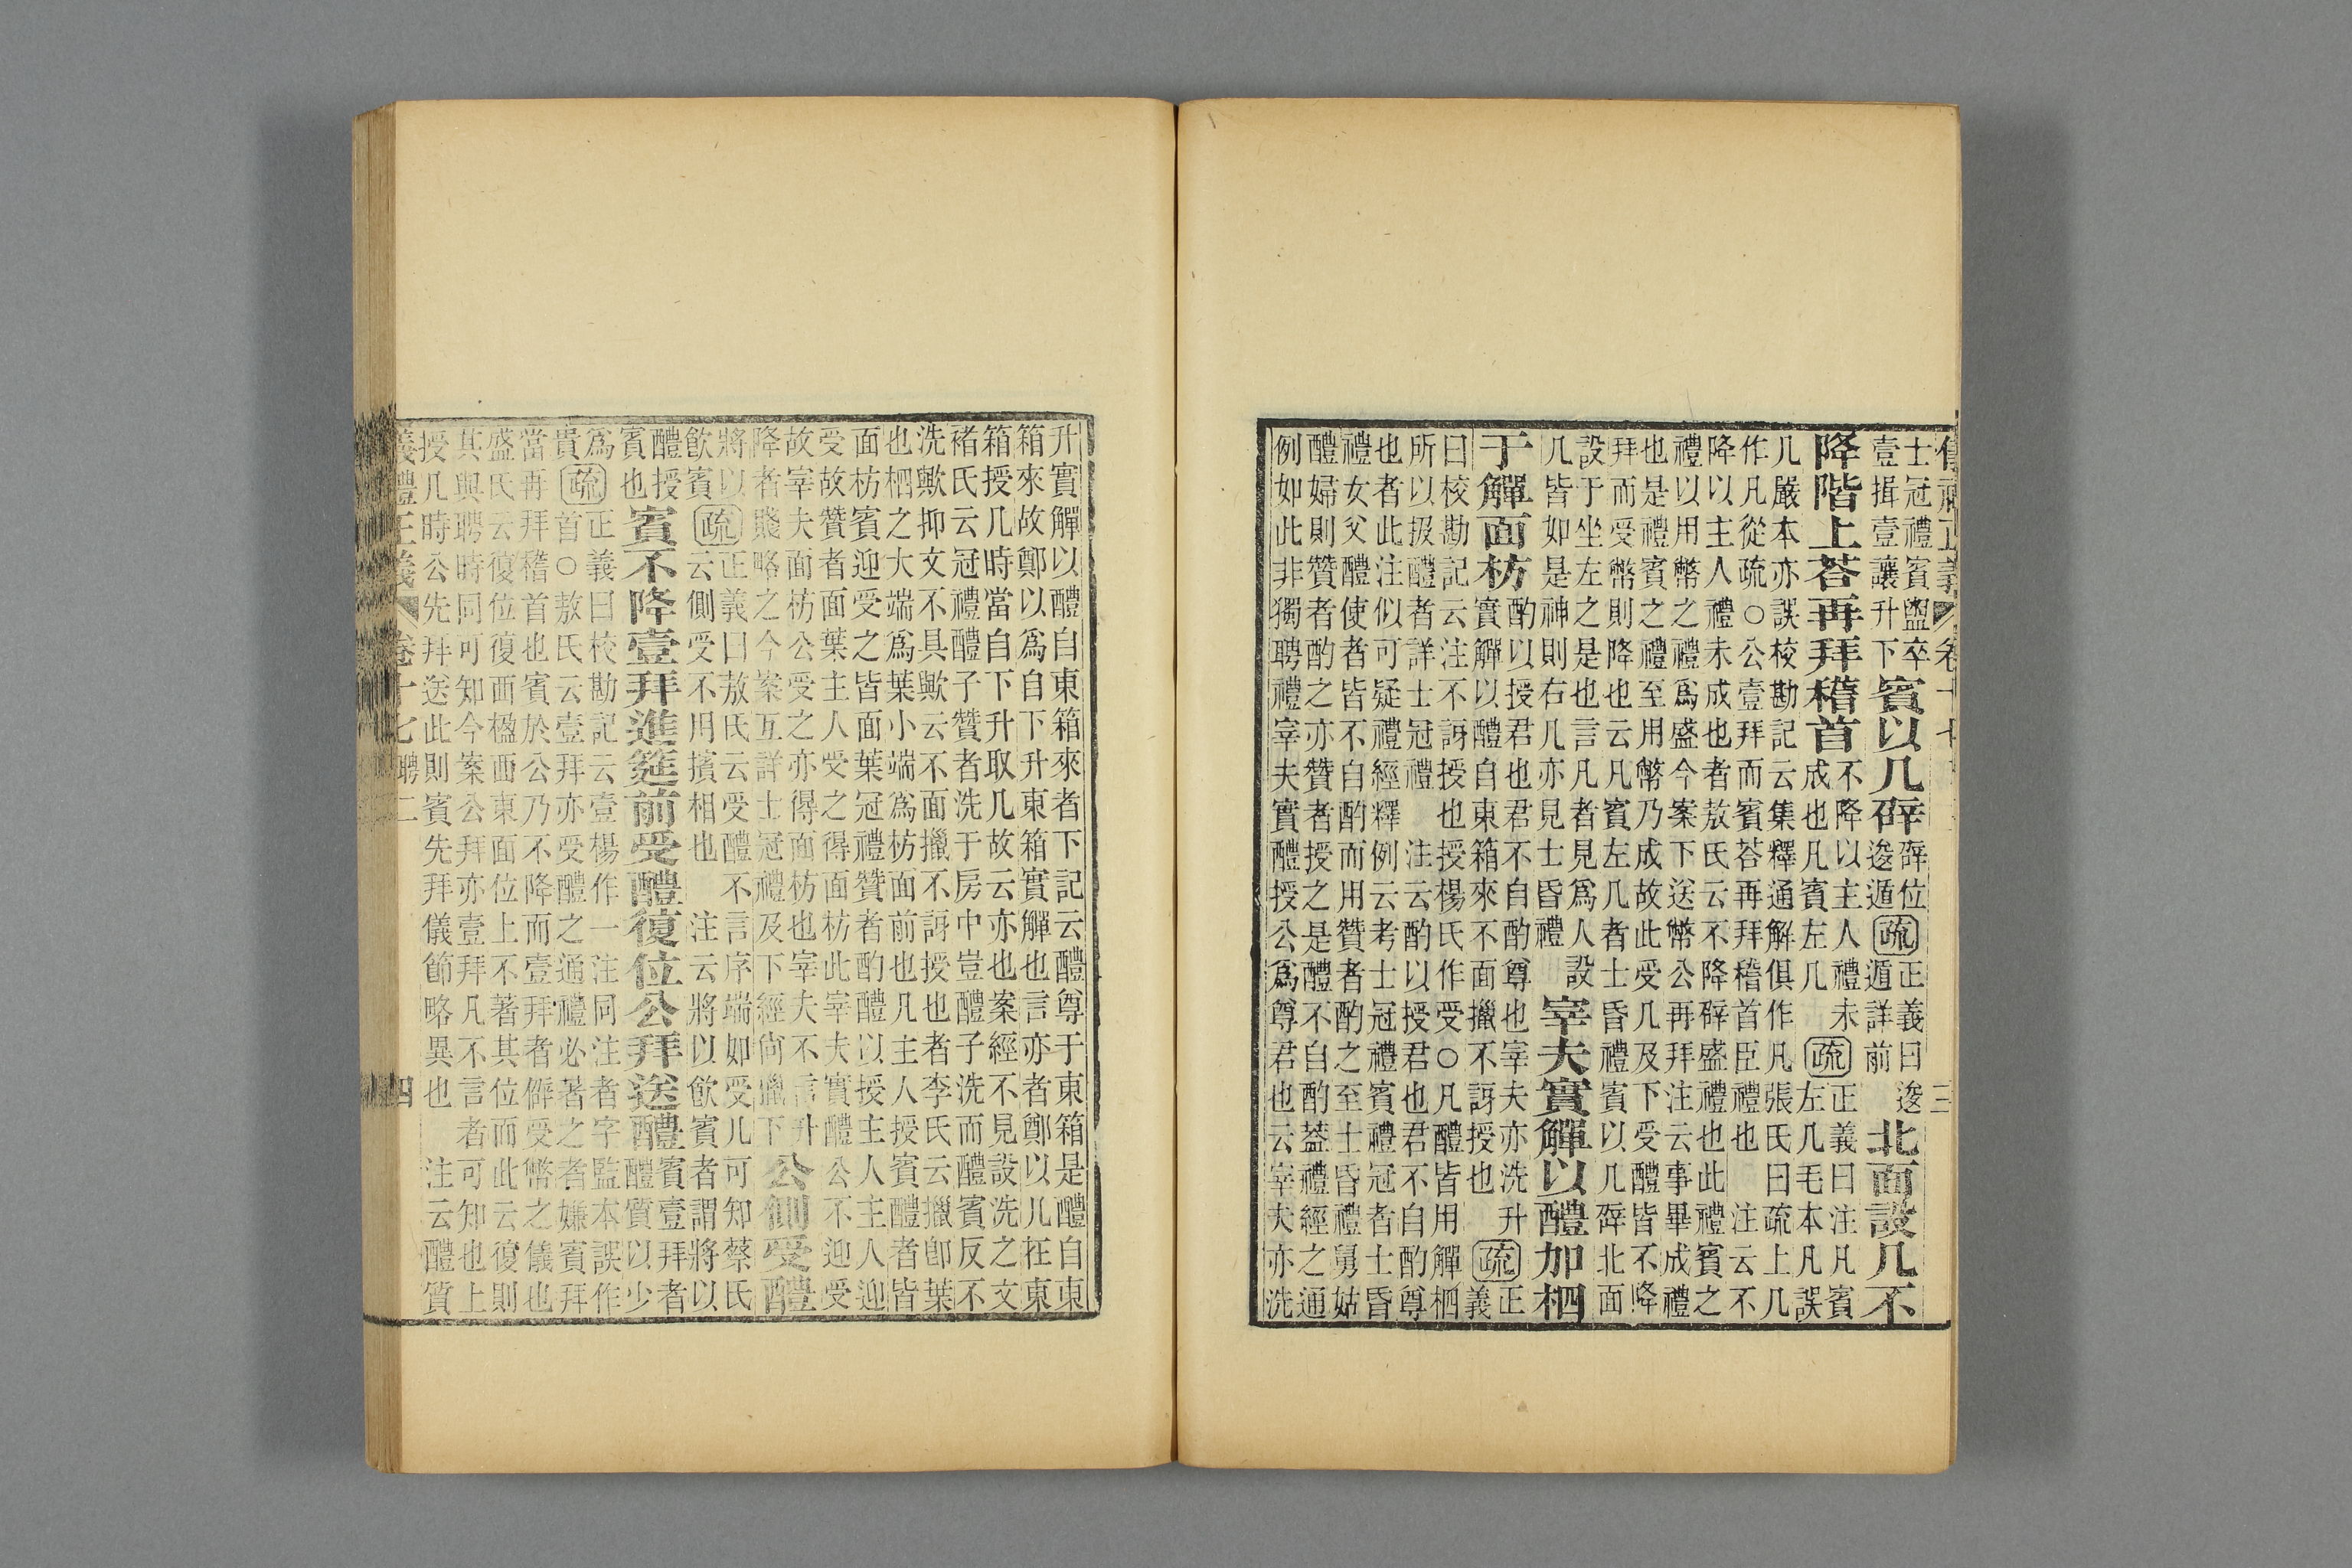 士冠禮賓盥卒
壹揖壹讓升下
賓以几辟
辟位
逡遁
疏
正義曰逡
遁詳前
北面設几不
降階上荅再拜稽首
不降以主人禮未
成也凡賓左几
疏
正義曰注凡賓
左几毛本凡誤
几嚴本亦誤校勘記云集釋通解俱作凡張氏曰疏上几
作凡從疏○公壹拜而賓荅再拜稽首臣禮也　注云不
降以主人禮未成也者敖氏云不降辟盛禮也此禮賓之
禮以用幣之禮爲盛今案下送幣公再拜注云事畢成禮
也是禮賓之禮至用幣乃成故此受几及下受醴皆不降
拜而受幣則降也云凡賓左几者士昏禮賓以几辟北面
設于坐左之是也言凡者見爲人設
几皆如是神則右几亦見士昏禮
宰夫實觶以醴加柶
于觶面枋
酌以授君也君不自酌尊也宰夫亦洗升
實觶以醴自東箱來不面擸不訝授也
疏
正
義
曰校勘記云注不訝授也授楊氏作受○凡醴皆用觶柶
所以扱醴者詳士冠禮　注云酌以授君也君不自酌尊
也者此注似可疑禮經釋例云考士冠禮賓禮冠者士昏
禮女父醴使者皆不自酌而用贊者酌之至士昏禮舅姑
醴婦則贊者酌之亦贊者授之是醴不自酌葢禮經之通
例如此非獨聘禮宰夫實醴授公爲尊君也云宰夫亦洗
升實觶以醴自東箱來者下記云醴尊于東箱是醴自東
箱來故鄭以爲自下升東箱實觶也言亦者鄭以几在東
箱授几時當自下升取几故云亦也案經不見設洗之文
褚氏云冠禮醴子贊者洗于房中豈醴子洗而醴賓反不
洗歟抑文不具歟云不面擸不訝授也者李氏云擸卽葉
也柶之大端爲葉小端爲枋面前也凡主人授賓醴者皆
面枋賓迎受之皆面葉冠禮贊者酌醴以授主人主人迎
受故贊者面葉主人受之得面枋此宰夫實醴公不迎受
故宰夫面枋公受之亦得面枋也宰夫不言升
降者賤略之今案互詳士冠禮及下經尙擸下
公側受醴
將以
飲賓
疏
正義曰敖氏云受醴不言序端如受几可知蔡氏
云側受不用擯相也　注云將以飲賓者謂將以
醴授
賓也
賓不降壹拜進筵前受醴復位公拜送醴
賓壹拜者
醴質以少
爲
貴
疏
正義曰校勘記云壹楊作一注同注者字監本誤作
首○敖氏云壹拜亦受醴之通禮必著之者嫌賓拜
當再拜稽首也賓於公乃不降而壹拜者僻受幣之儀也
盛氏云復位復西楹西東面位上不著其位而此云復則
其與聘時同可知今案公拜亦壹拜凡不言者可知也上
授几時公先拜送此則賓先拜儀節略異也　注云醴質
儀禮正義　卷十七　聘二　四